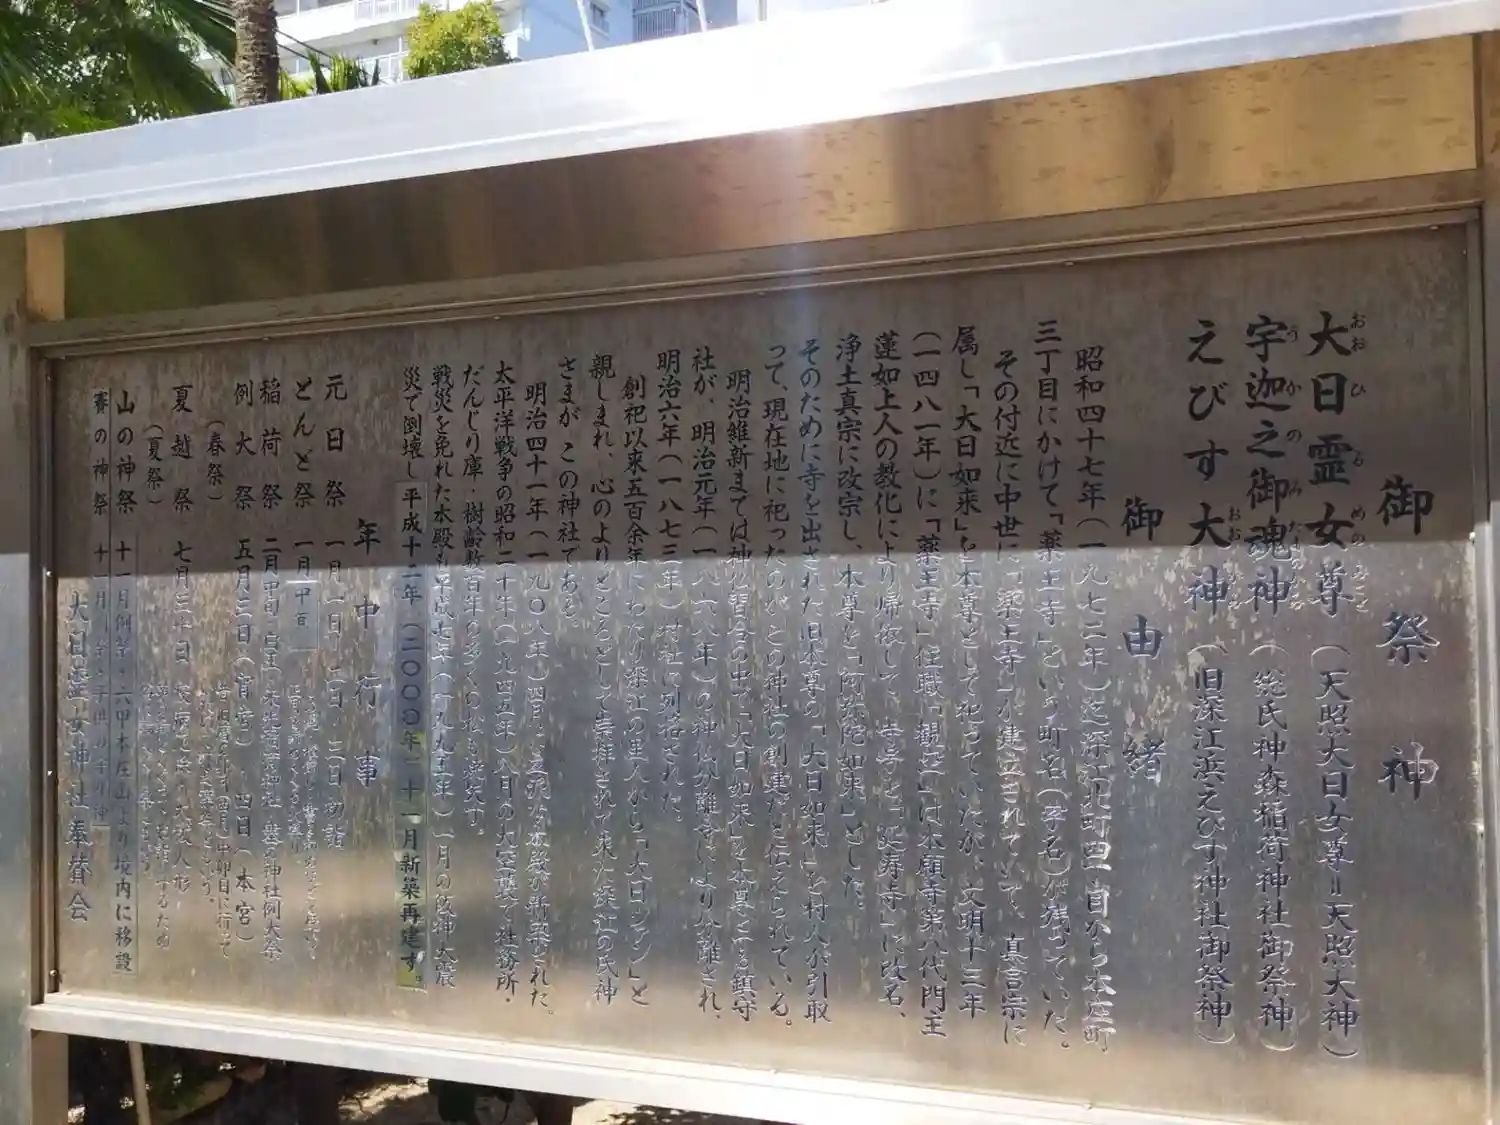 御祭神
大日霊女尊（天照大日女尊＝天照大神）
おおひるめのみこと
宇迦之御魂神（総氏神森稲荷神社御祭神）
うかのみたまのかみ
えびす大神（旧深江浜えびす神社御祭神）
おお
御由緒
昭和四十七年（一九七二年）迄深江北町四丁目から本庄町
三丁目にかけて「薬王寺」という町名（字名）が残っていた。
その付近に中世に「薬王寺」が建立されていて、真言宗に
属し「大日如来」を本尊として祀っていたが、文明十三年
（一四八一年）に「薬王寺」住職「観空」は本願寺第八代門主
蓮如上人の教化により帰依して、寺号を「延寿寺」に改名、
浄土真宗に改宗し、本尊を「阿弥陀如来」とした。
そのために寺を出された旧本尊の「大日如来」を村人が引取
って、現在地に祀ったのがこの神社の創建だと伝えられている。
明治維新までは神仏習合の中で「大日如来」を本尊とする鎮守
社が、明治元年（一八六八年）の神仏分離令により分離され、
明治六年（一八七三年）村社に列格された。
創祀以来五百余年にわたり深江の里人から「大日ッァン」と
親しまれ、心のよりどころとして崇拝されて来た深江の氏神
さまが、この神社である。
明治四十一年（一九〇八年）四月、
本殿が新築された。
太平洋戦争の昭和二十年（一九四五年）八月の大空襲で社務所・
だんじり庫・樹齢数百年の多くの松も焼失す。
戦災を免れた本殿も平成七年（一九九五年）一月の阪神大震
災で倒壊し平成十二年（二〇〇〇年）十一月新築再建す。
年中行事
元日祭　一月一日　二日　三日　初詣
とんど祭　一月（中旬）
稲荷祭　二月中旬
例大祭　五月三日（宵宮）四日（本宮）
（春祭）
夏越祭　七月三十日
（夏祭）
山の神祭　十一月例祭・六甲本庄山より境内に移設
賽の神祭　十一月例祭・子供の守り神
大日霊女神社奉賛会